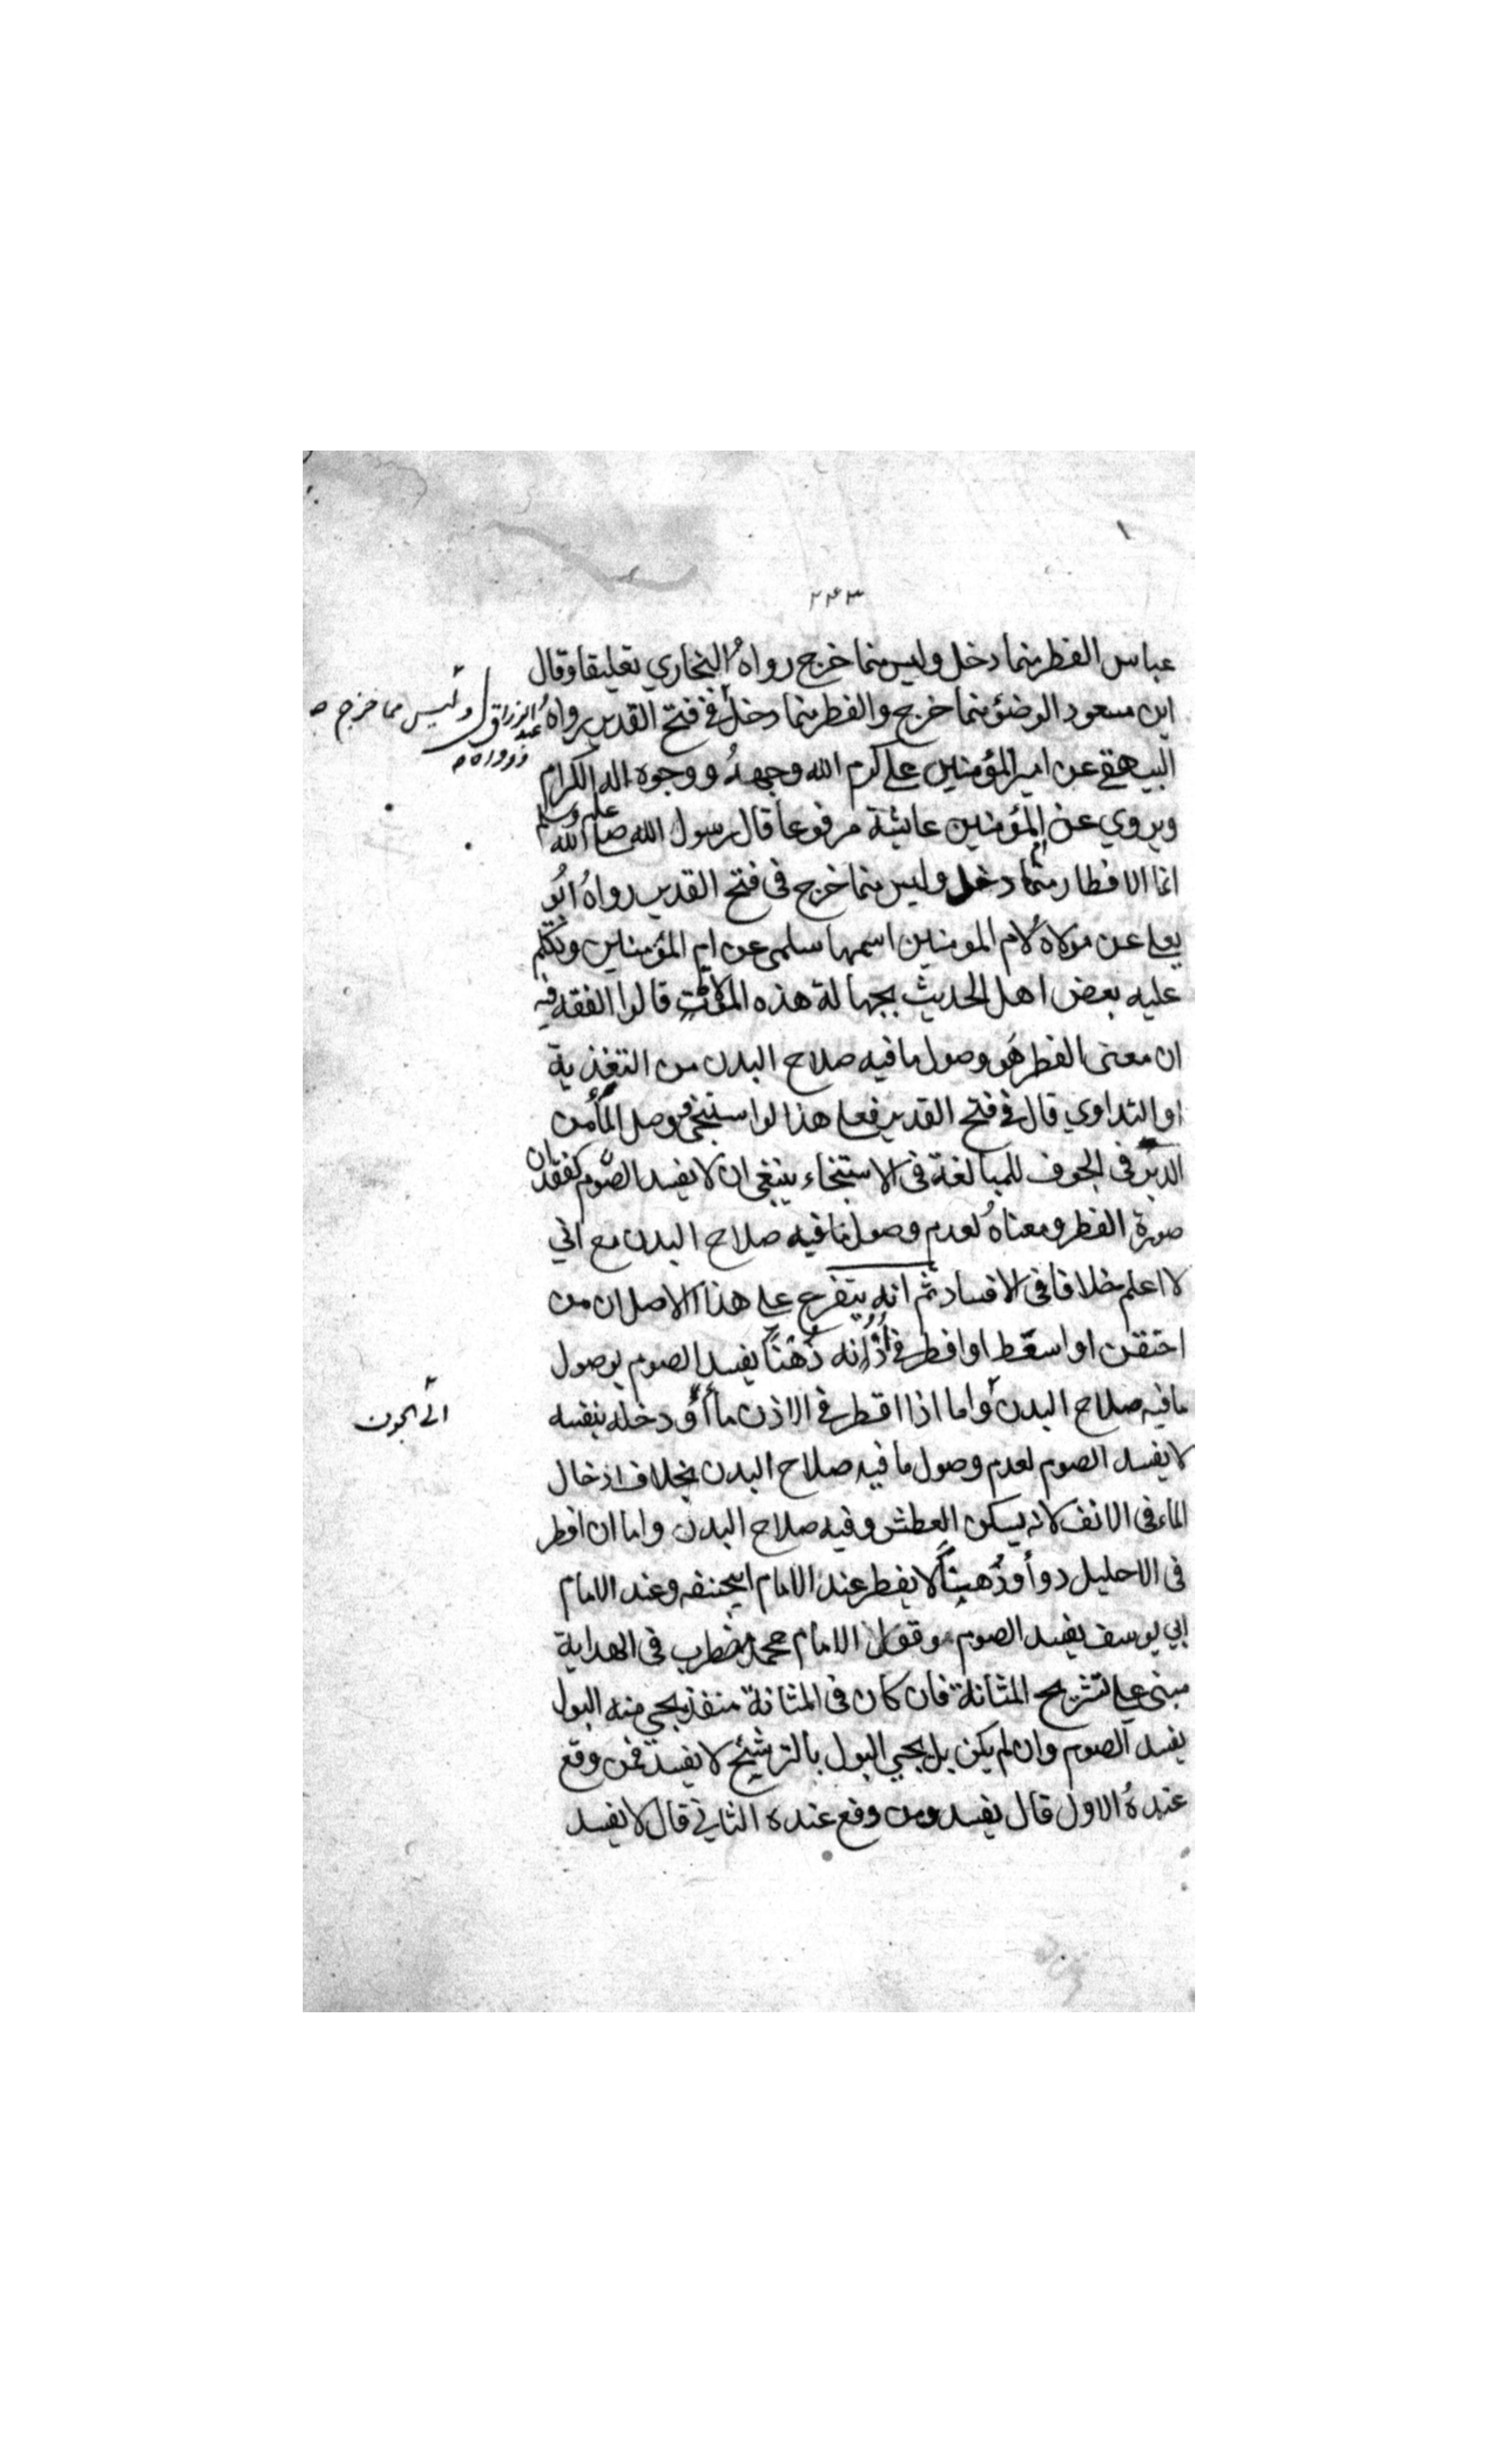 ٢٤٣
عباس الفطر مما دخل وليس مما خرج رواه البخاري تعليقا وقال
ابن مسعود الوضؤ مما خرج والفطر مما دخل في فتح القدير رواه عبد الرزاق
وليس مما خرج
البيهقي عن امير المؤمنين علي كرم الله وجهه ووجوه اله الكرام
ويروي عن ام المؤمنين عائشة مرفوعا قال رسول الله صلى الله عليه وسلم
انما الافطار مما دخل وليس مما خرج في فتح القدير رواه ابو
يعلى عن مولاة لام المومنين اسمها سلمى عن ام المؤمنين وتكلم
عليه بعض اهل الحديث بجهالة هذه المولاة قالوا الفقه فيه
ان معنى الفطر هو وصول ما فيه صلاح البدن من التغذية
او التداوي قال في فتح القدير فعلى هذا لو استنجى فوصل الماء من
الدبر في الجوف للمبالغة في الاستنجاء ينبغي ان لا يفسد الصوم لفقدان
صورة الفطر ومعناه لعدم وصول ما فيه صلاح البدن مع اني
لا اعلم خلافا في الافساد ثم انه يتفرع على هذا الاصل ان من
احتقن او استعط او اقطر في اذنه دهنا يفسد الصوم بوصول
ما فيه صلاح البدن واما اذا اقطر في الاذن ماء او دخله بنفسه
الى الجوف
لا يفسد الصوم لعدم وصول ما فيه صلاح البدن بخلاف ادخال
الماء في الانف لانه يسكن العطش وفيه صلاح البدن واما ان اقطر
في الاحليل دواء او دهنا لا يفطر عند الامام ابي حنيفه وعند الامام
ابي يوسف يفسد الصوم وقول الامام محمد مضطرب في الهداية
مبنى على تشريح المثانة فان كان في المثانة منفذ يجي منه البول
يفسد الصوم وان لم يكن بل يجي البول بالترشيح لا يفسد فمن وقع
عنده الاول قال يفسد ومن وقع عنده الثاني قال لا يفسد